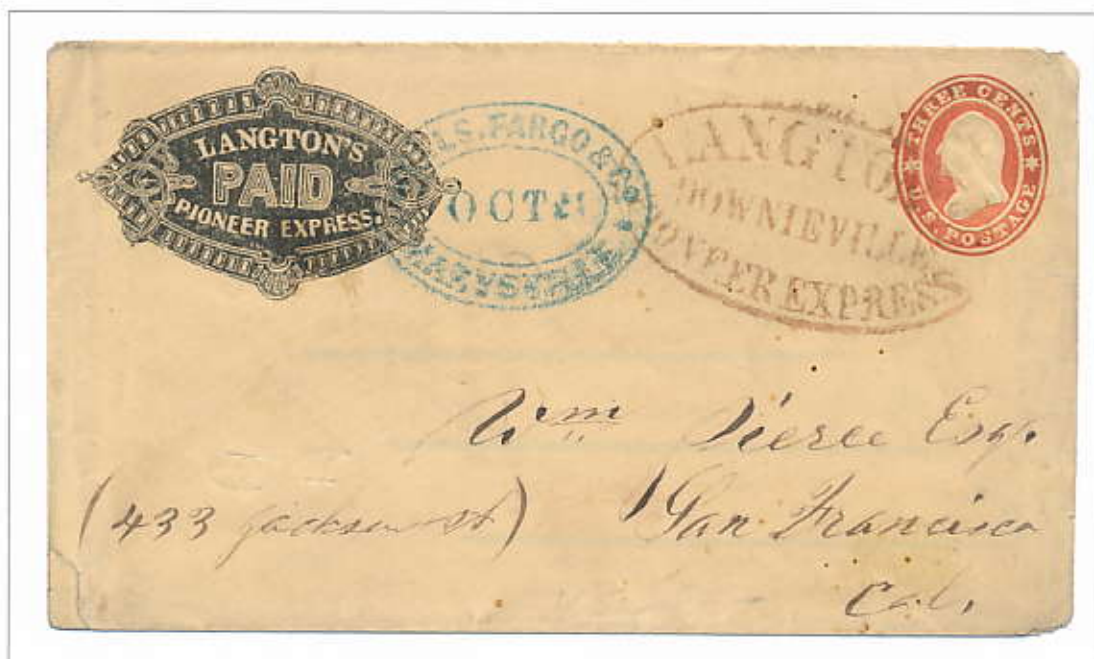 LANGTON'S
PAID
PIONEER EXPRESS.
LS, FARGO & CO
OCT
MARYSVILLE
LANGTON
DOWNIEVILLE
IONEER EXPRESS
THREE CENTS
U.S. POSTAGE
Wm Pierce Esqr
(433 Jackson St)
San Francisco
Cal.